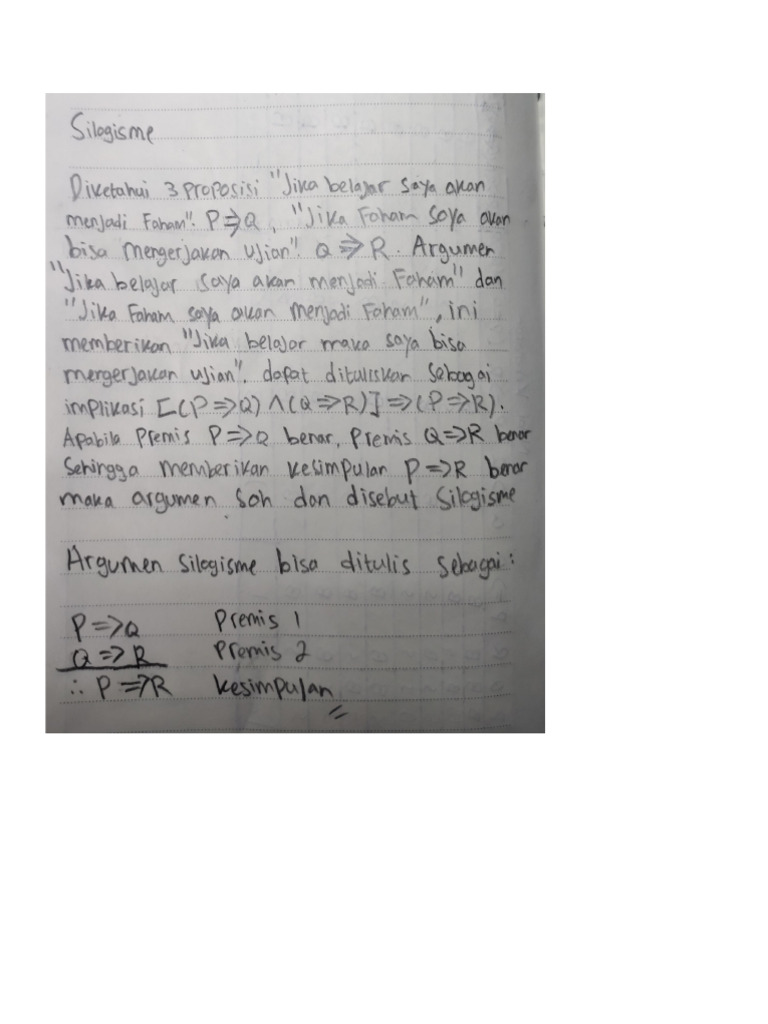 Silogisme
Diketahui 3 proposisi "Jika belajar saya akan
menjadi Faham". P⇒Q, "Jika Faham saya akan
bisa mengerjakan ujian". Q⇒R. Argumen
"Jika belajar saya akan menjadi Faham" dan
"Jika Faham saya akan menjadi Faham", ini
memberikan "Jika belajar maka saya bisa
mergerjakan ujian". dapat dituliskan sebagai
implikasi [(P⇒Q)∧(Q⇒R)]⇒(P⇒R).
Apabila Premis P⇒Q benar, Premis Q⇒R benar
Sehingga memberikan kesimpulan P⇒R benar
maka argumen Sah dan disebut Silogisme
Argumen Silogisme bisa ditulis sebagai:
P⇒Q Premis 1
Q⇒R Premis 2
∴ P⇒R kesimpulan